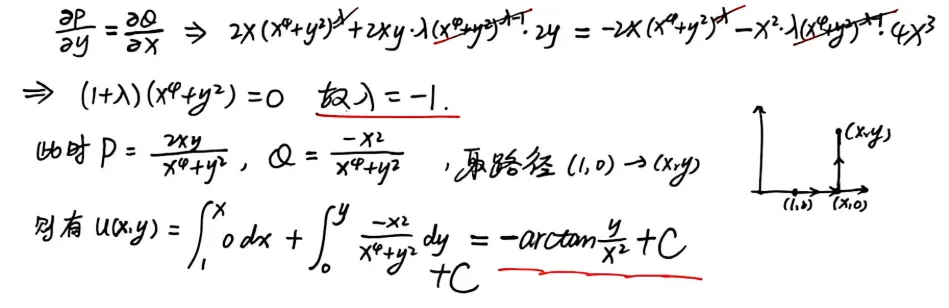 ∂P/∂y = ∂Q/∂x ⇒ 2x(x⁴+y²)^λ + 2xy·λ(x⁴+y²)^(λ-1)·2y = -2x(x⁴+y²)^λ - x²·λ(x⁴+y²)^(λ-1)·4x³
⇒ (1+λ)(x⁴+y²)=0 故λ=-1.
此时 P = 2xy/(x⁴+y²), Q = -x²/(x⁴+y²), 取路径 (1,0)→(x,y)
(x,y)
(1,0) (x,0)
则有 u(x,y) = ∫₁ˣ 0 dx + ∫₀ʸ -x²/(x⁴+y²) dy + C = -arctan y/x² + C